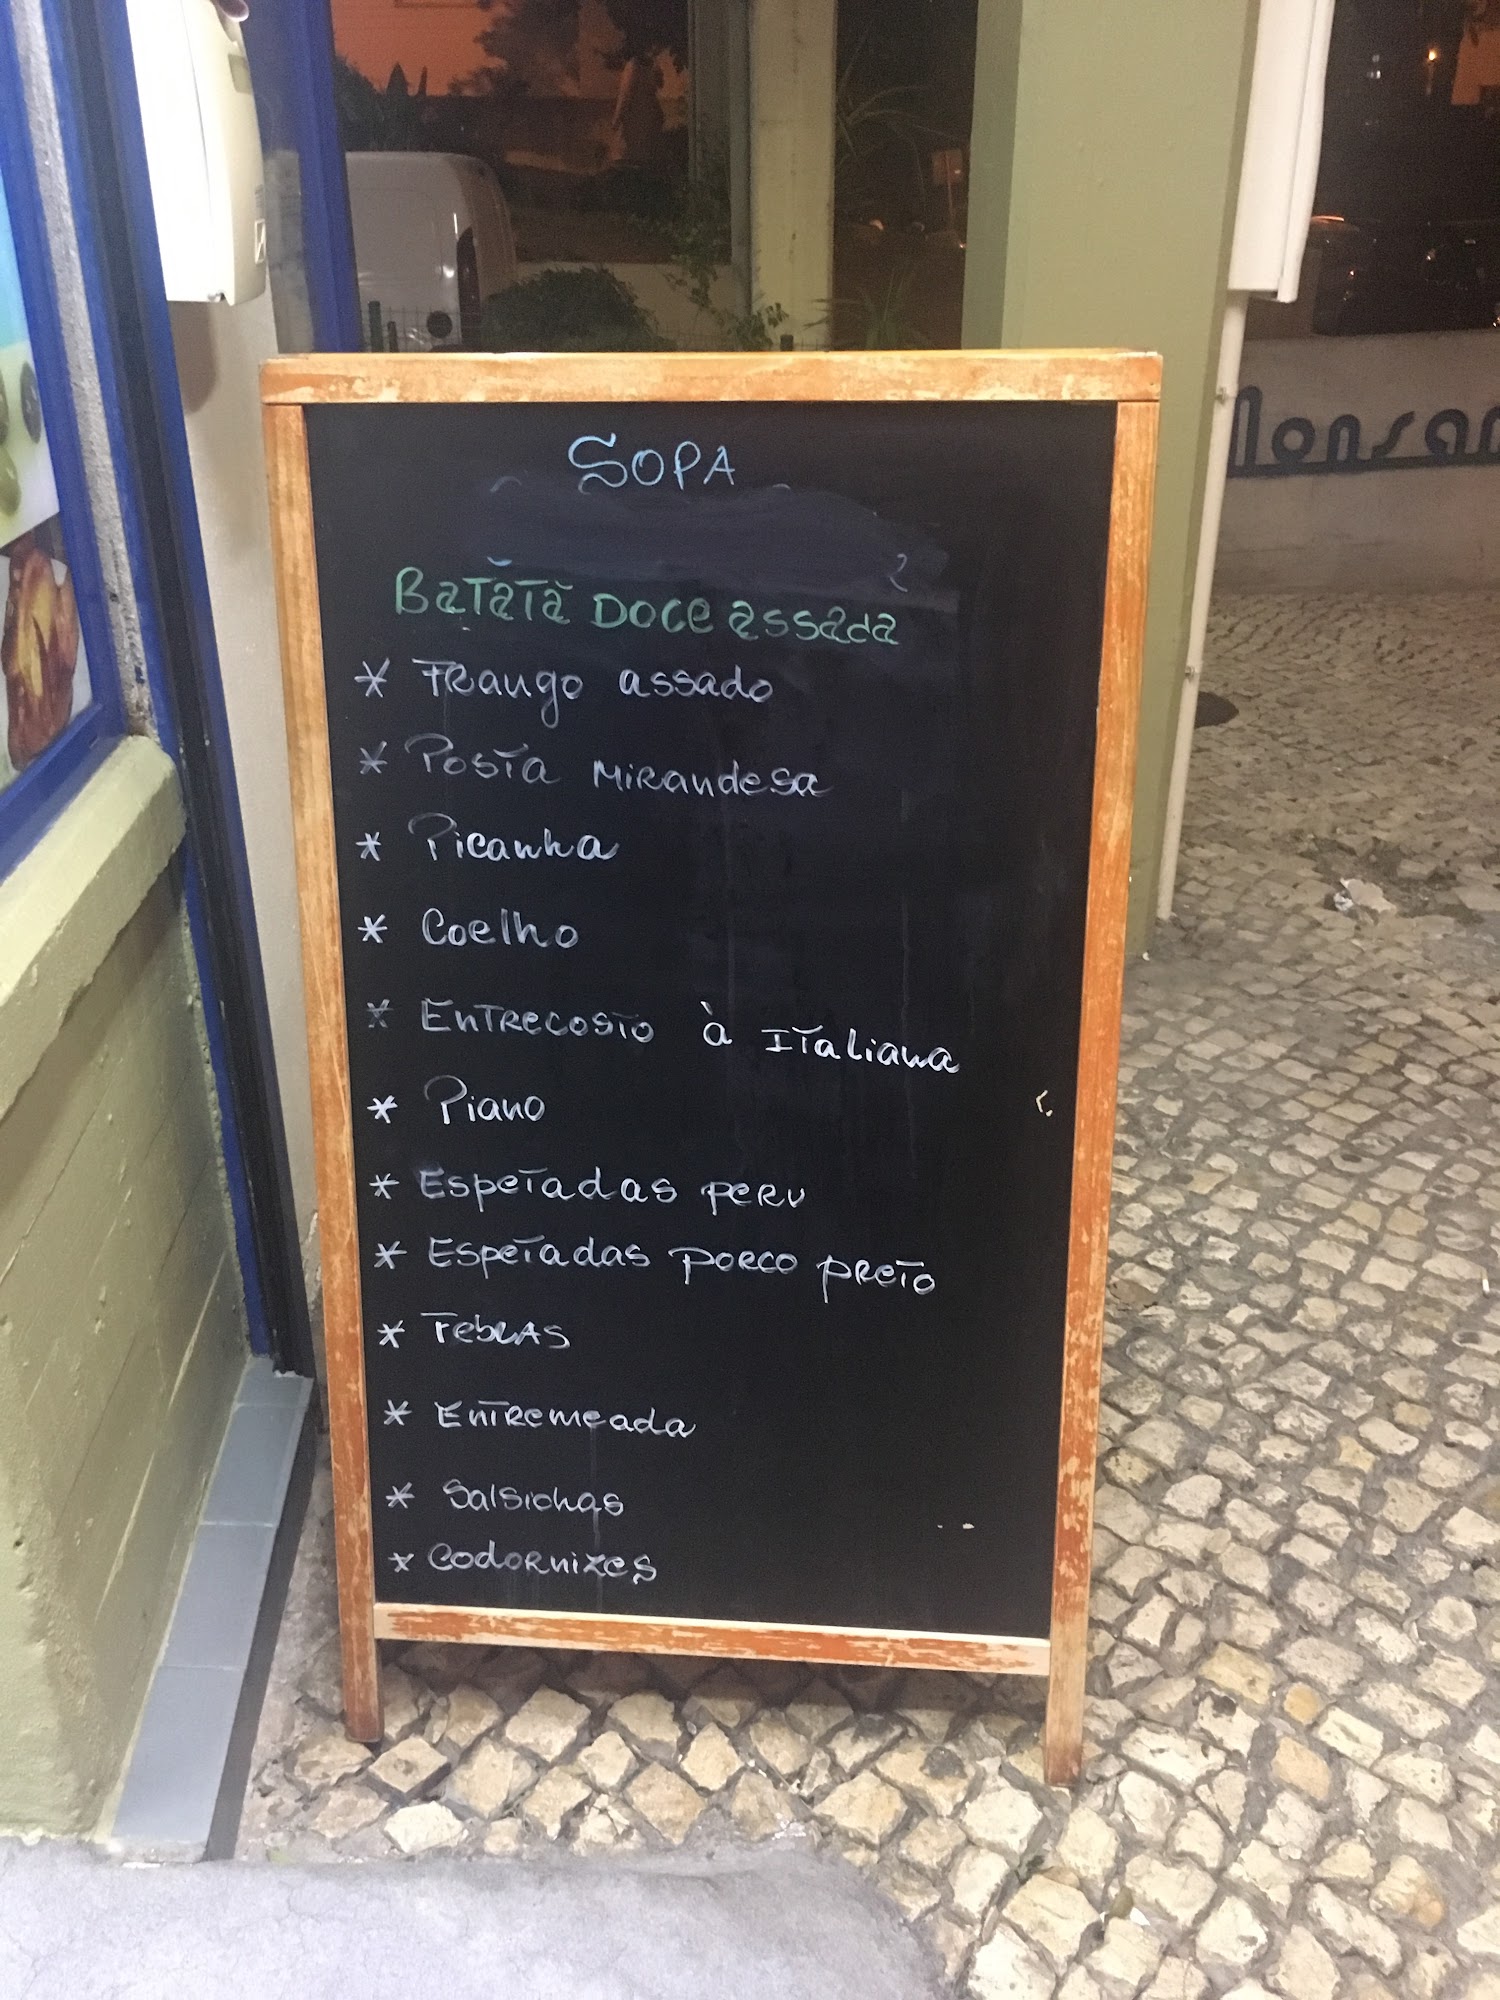 SOPA
Batata Doce assada
* Frango assado
* Posta Mirandesa
* Picanha
* Coelho
* Entrecosto à Italiana
* Piano
* Espetadas peru
* Espetadas porco preto
* Febras
* Entremeada
* Salsichas
* Codornizes
Monsan